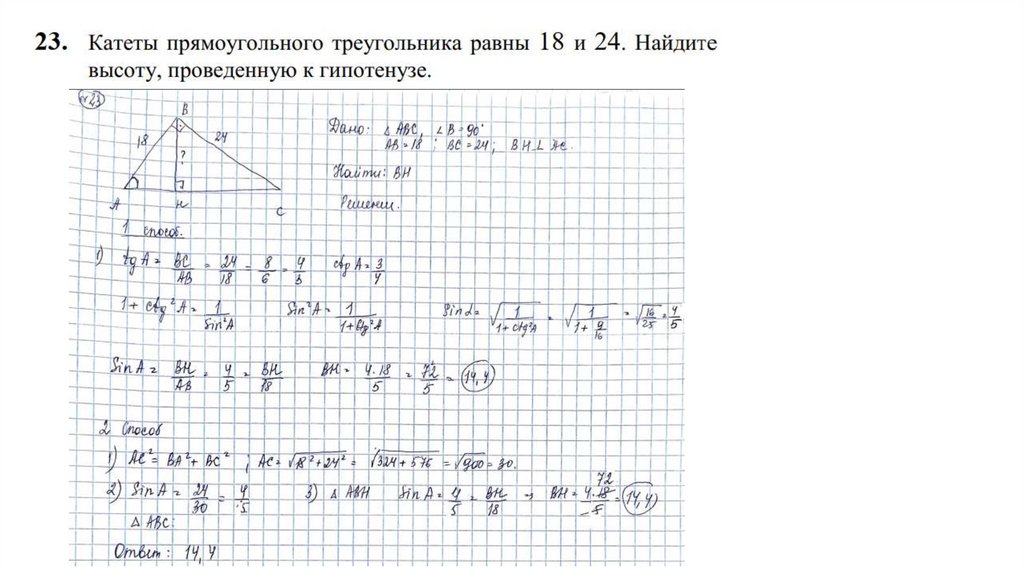 23. Катеты прямоугольного треугольника равны 18 и 24. Найдите
высоту, проведенную к гипотенузе.
№23
B
18
24
?
A
H
C
Дано: △ ABC, ∠B = 90°
AB = 18; BC = 24; BH ⊥ AC.
Найти: BH
Решение.
1 способ.
1) tg A = BC/AB = 24/18 = 8/6 = 4/3 ctg A = 3/4
1 + ctg²A = 1/Sin²A Sin²A = 1/1+ctg²A Sin α = √1/1+ctg²A = √1/1+9/16 = √16/25 = 4/5
Sin A = BH/AB = 4/5 = BH/18 BH = 4·18/5 = 72/5 = 14,4
2 Способ
1) AC² = BA² + BC²; AC = √18²+24² = √324+576 = √900 = 30.
2) Sin A = 24/30 = 4/5 3) △ ABH Sin A = 4/5 = BH/18 → BH = 4·18/5 = 14,4
72
△ ABC:
Ответ: 14,4